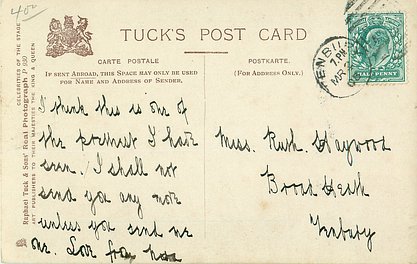 400
TUCK'S POST CARD
CARTE POSTALE
IF SENT ABROAD, THIS SPACE MAY ONLY BE USED
FOR NAME AND ADDRESS OF SENDER.
POSTKARTE.
(FOR ADDRESS ONLY.)
Raphael Tuck & Sons' Real Photograph
CELEBRITIES OF THE STAGE
ART PUBLISHERS TO THEIR MAJESTIES THE KING & QUEEN
TENBURY
7.PM
MR
HALFPENNY
I think this is one of
the prettiest I have
seen. I shall not
send you any more
unless you send me
one. Love from
Miss. Ruth. Haywood
Broad Heath
Tenbury